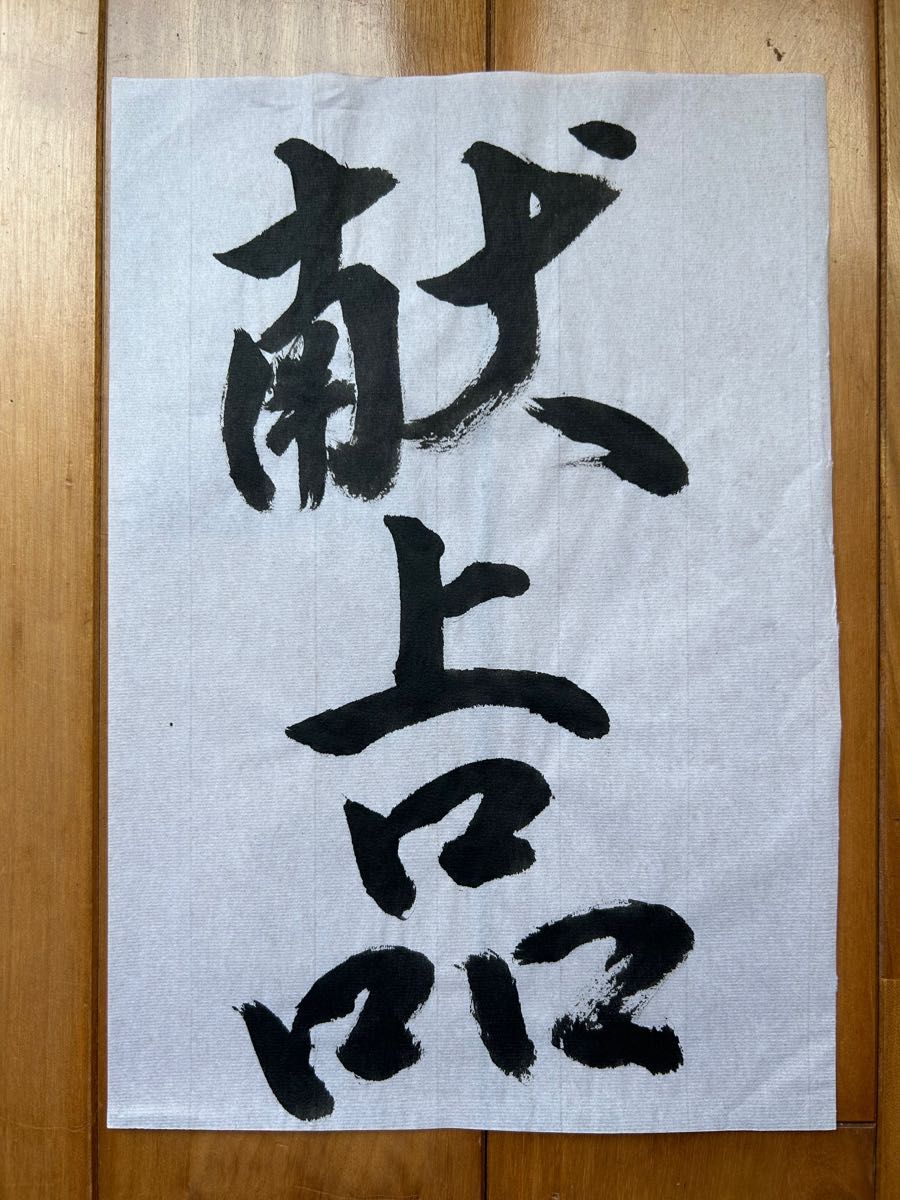 献上品